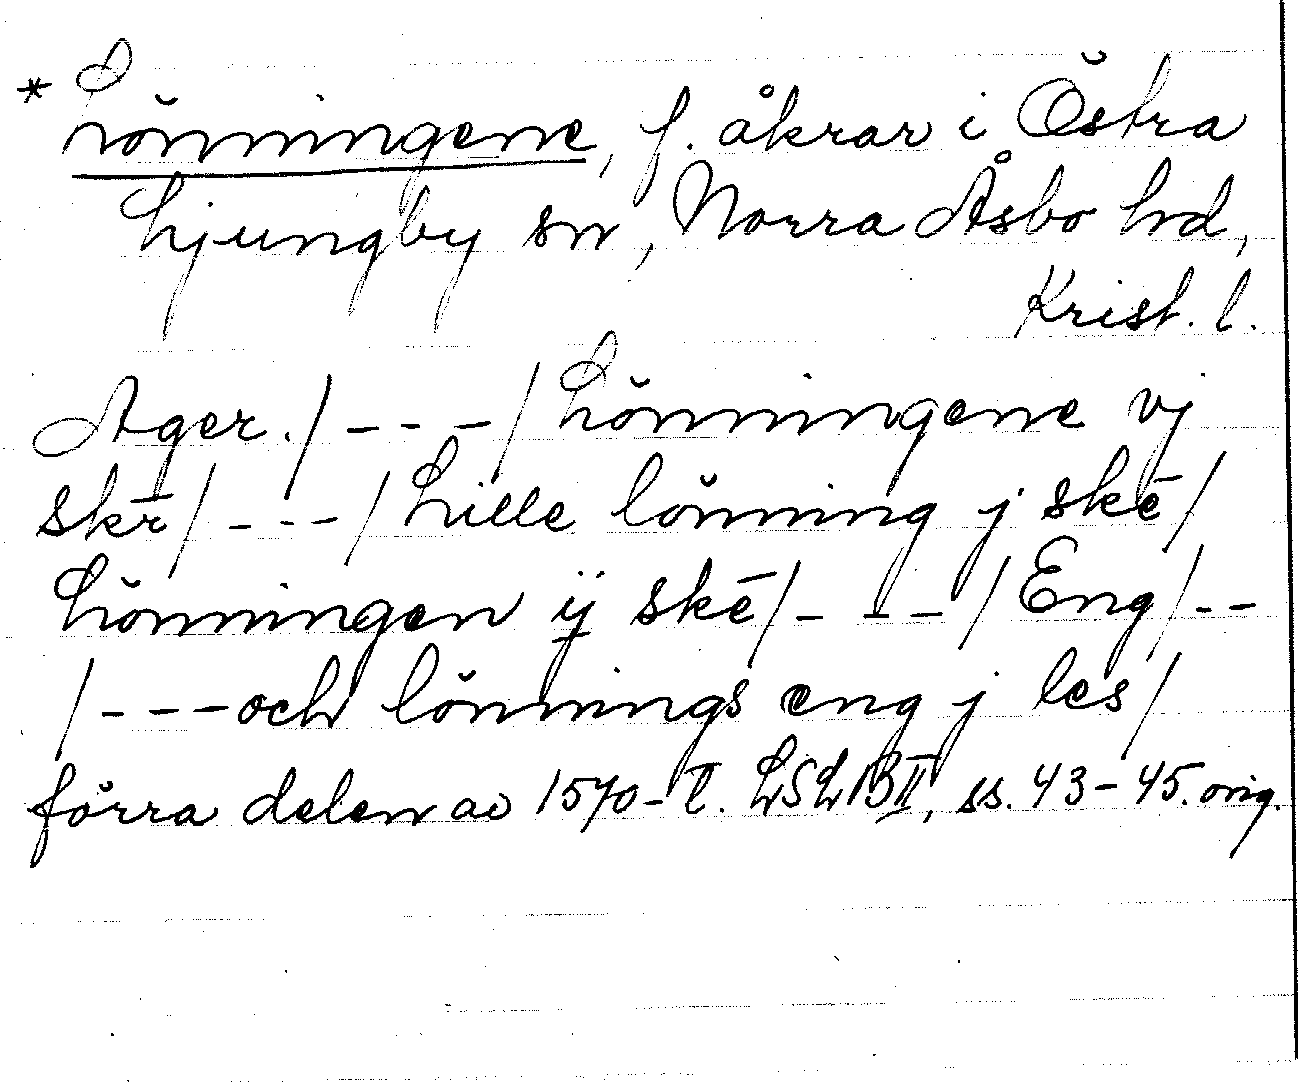 * Lönningene, f. åkrar i Östra
Ljungby sn, Norra Åsbo hd,
Krist. l.
Ager./---/Lönningene vj
skr̄/---/Lille lönning j skē/
Lönningen ij skē/---/Eng/--
/---och lönnings eng j les/
förra delen av 1570-t. LSLB II, ss. 43-45. orig.